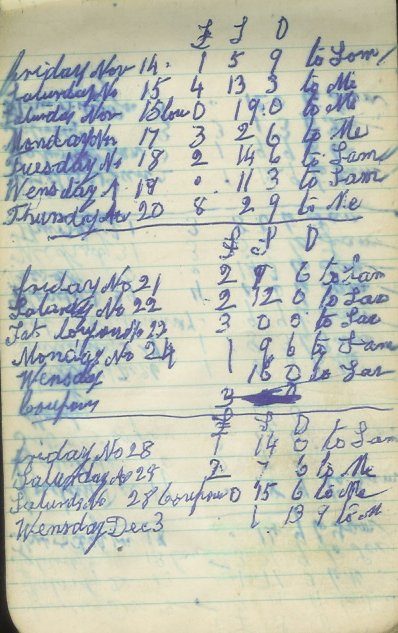 £ S D
Friday Nov 14. 1 5 9 to Som
Saturday No 15 4 13 3 to Me
Saturday Nov 15 0 19.0 to Me
Monday No 17 3 2 6 to Me
Tuesday No 18 2 14 6 to Sam
Wensday 19 0 11 3 to Sam
Thursday No 20 8 2 9 to Me
£ S D
Friday No 21 2 6 to Sam
Saturday No 22 2 12 0 to
Sat No 22 3 0 0 to
Monday No 24 1 9 6 to Sam
Wensday 16 0 to
Coupons
£ S D
Friday No 28 1 14 0 to Sam
Saturday No 29 2 7 6 to Me
Saturd No 28 Coupons 0 15 6 to Me
Wensday Dec 3 1 13 9 to M